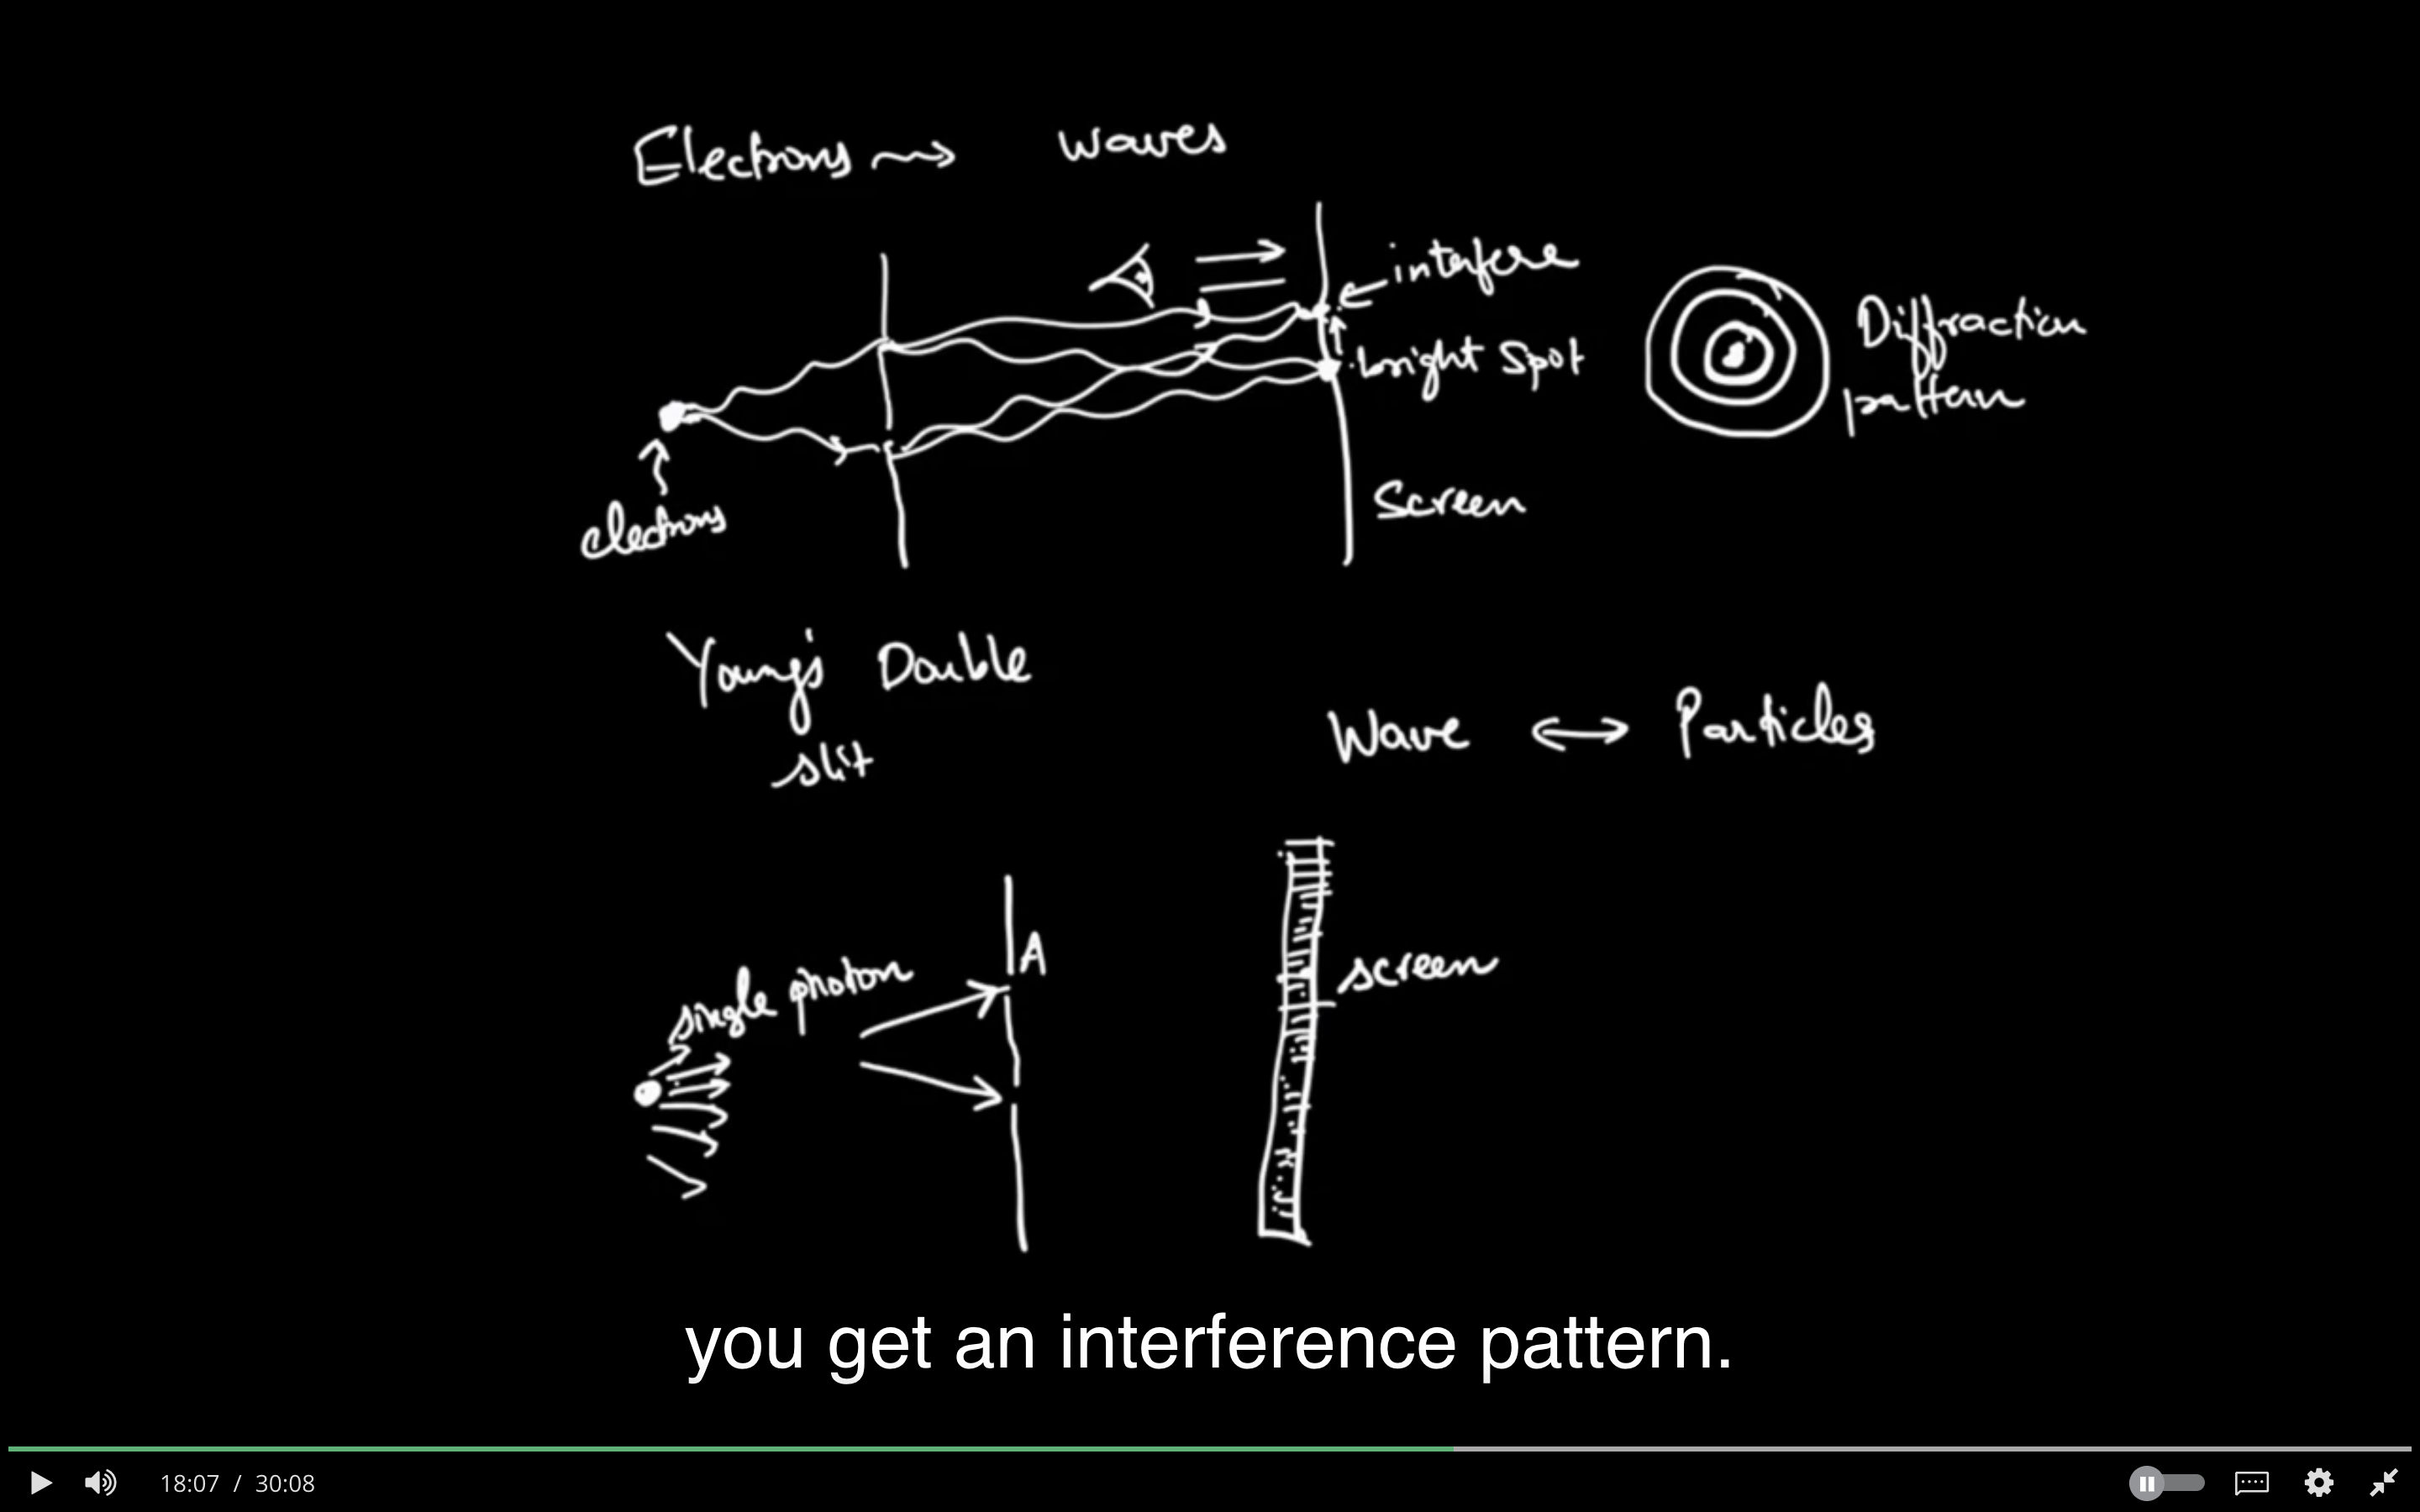 Electrons
waves
interfere
bright spot
Diffraction
pattern
electrons
Screen
Young's Double
slit
Wave
Particles
A
single photon
screen
you get an interference pattern.
18:07 / 30:08